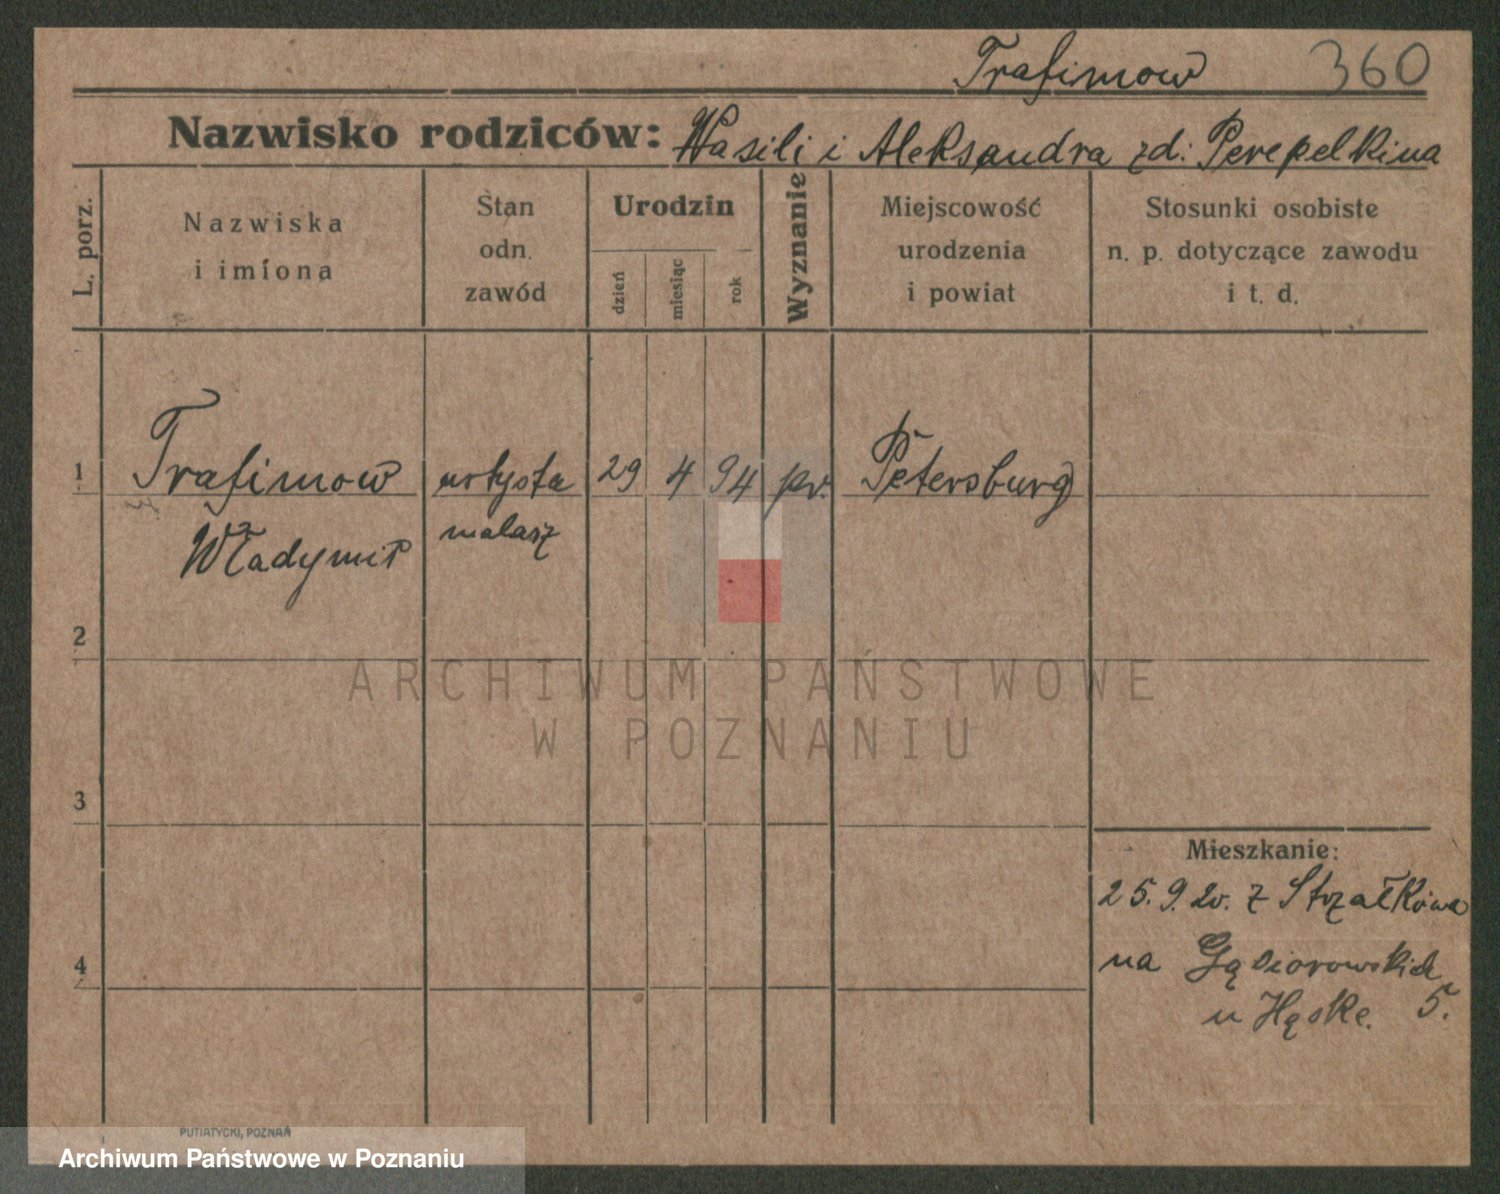 Trafimow 360
Nazwisko rodziców: Wasili i Aleksandra zd: Perepelkina
L. porz.
Nazwiska
i imiona
Stan
odn.
zawód
Urodzin
dzień
miesiąc
rok
Wyznanie
Miejscowość
urodzenia
i powiat
Stosunki osobiste
n. p. dotyczące zawodu
i t. d.
1 Trafimow artysta 29 4 94 pr. Petersburg
Władymir malarz
2
3
4
ARCHIWUM PAŃSTWOWE
W POZNANIU
Mieszkanie:
25.9.20. z Strzałkowa
na Gąsiorowskich
u Hąske. 5.
PUTIATYCKI, POZNAŃ
Archiwum Państwowe w Poznaniu